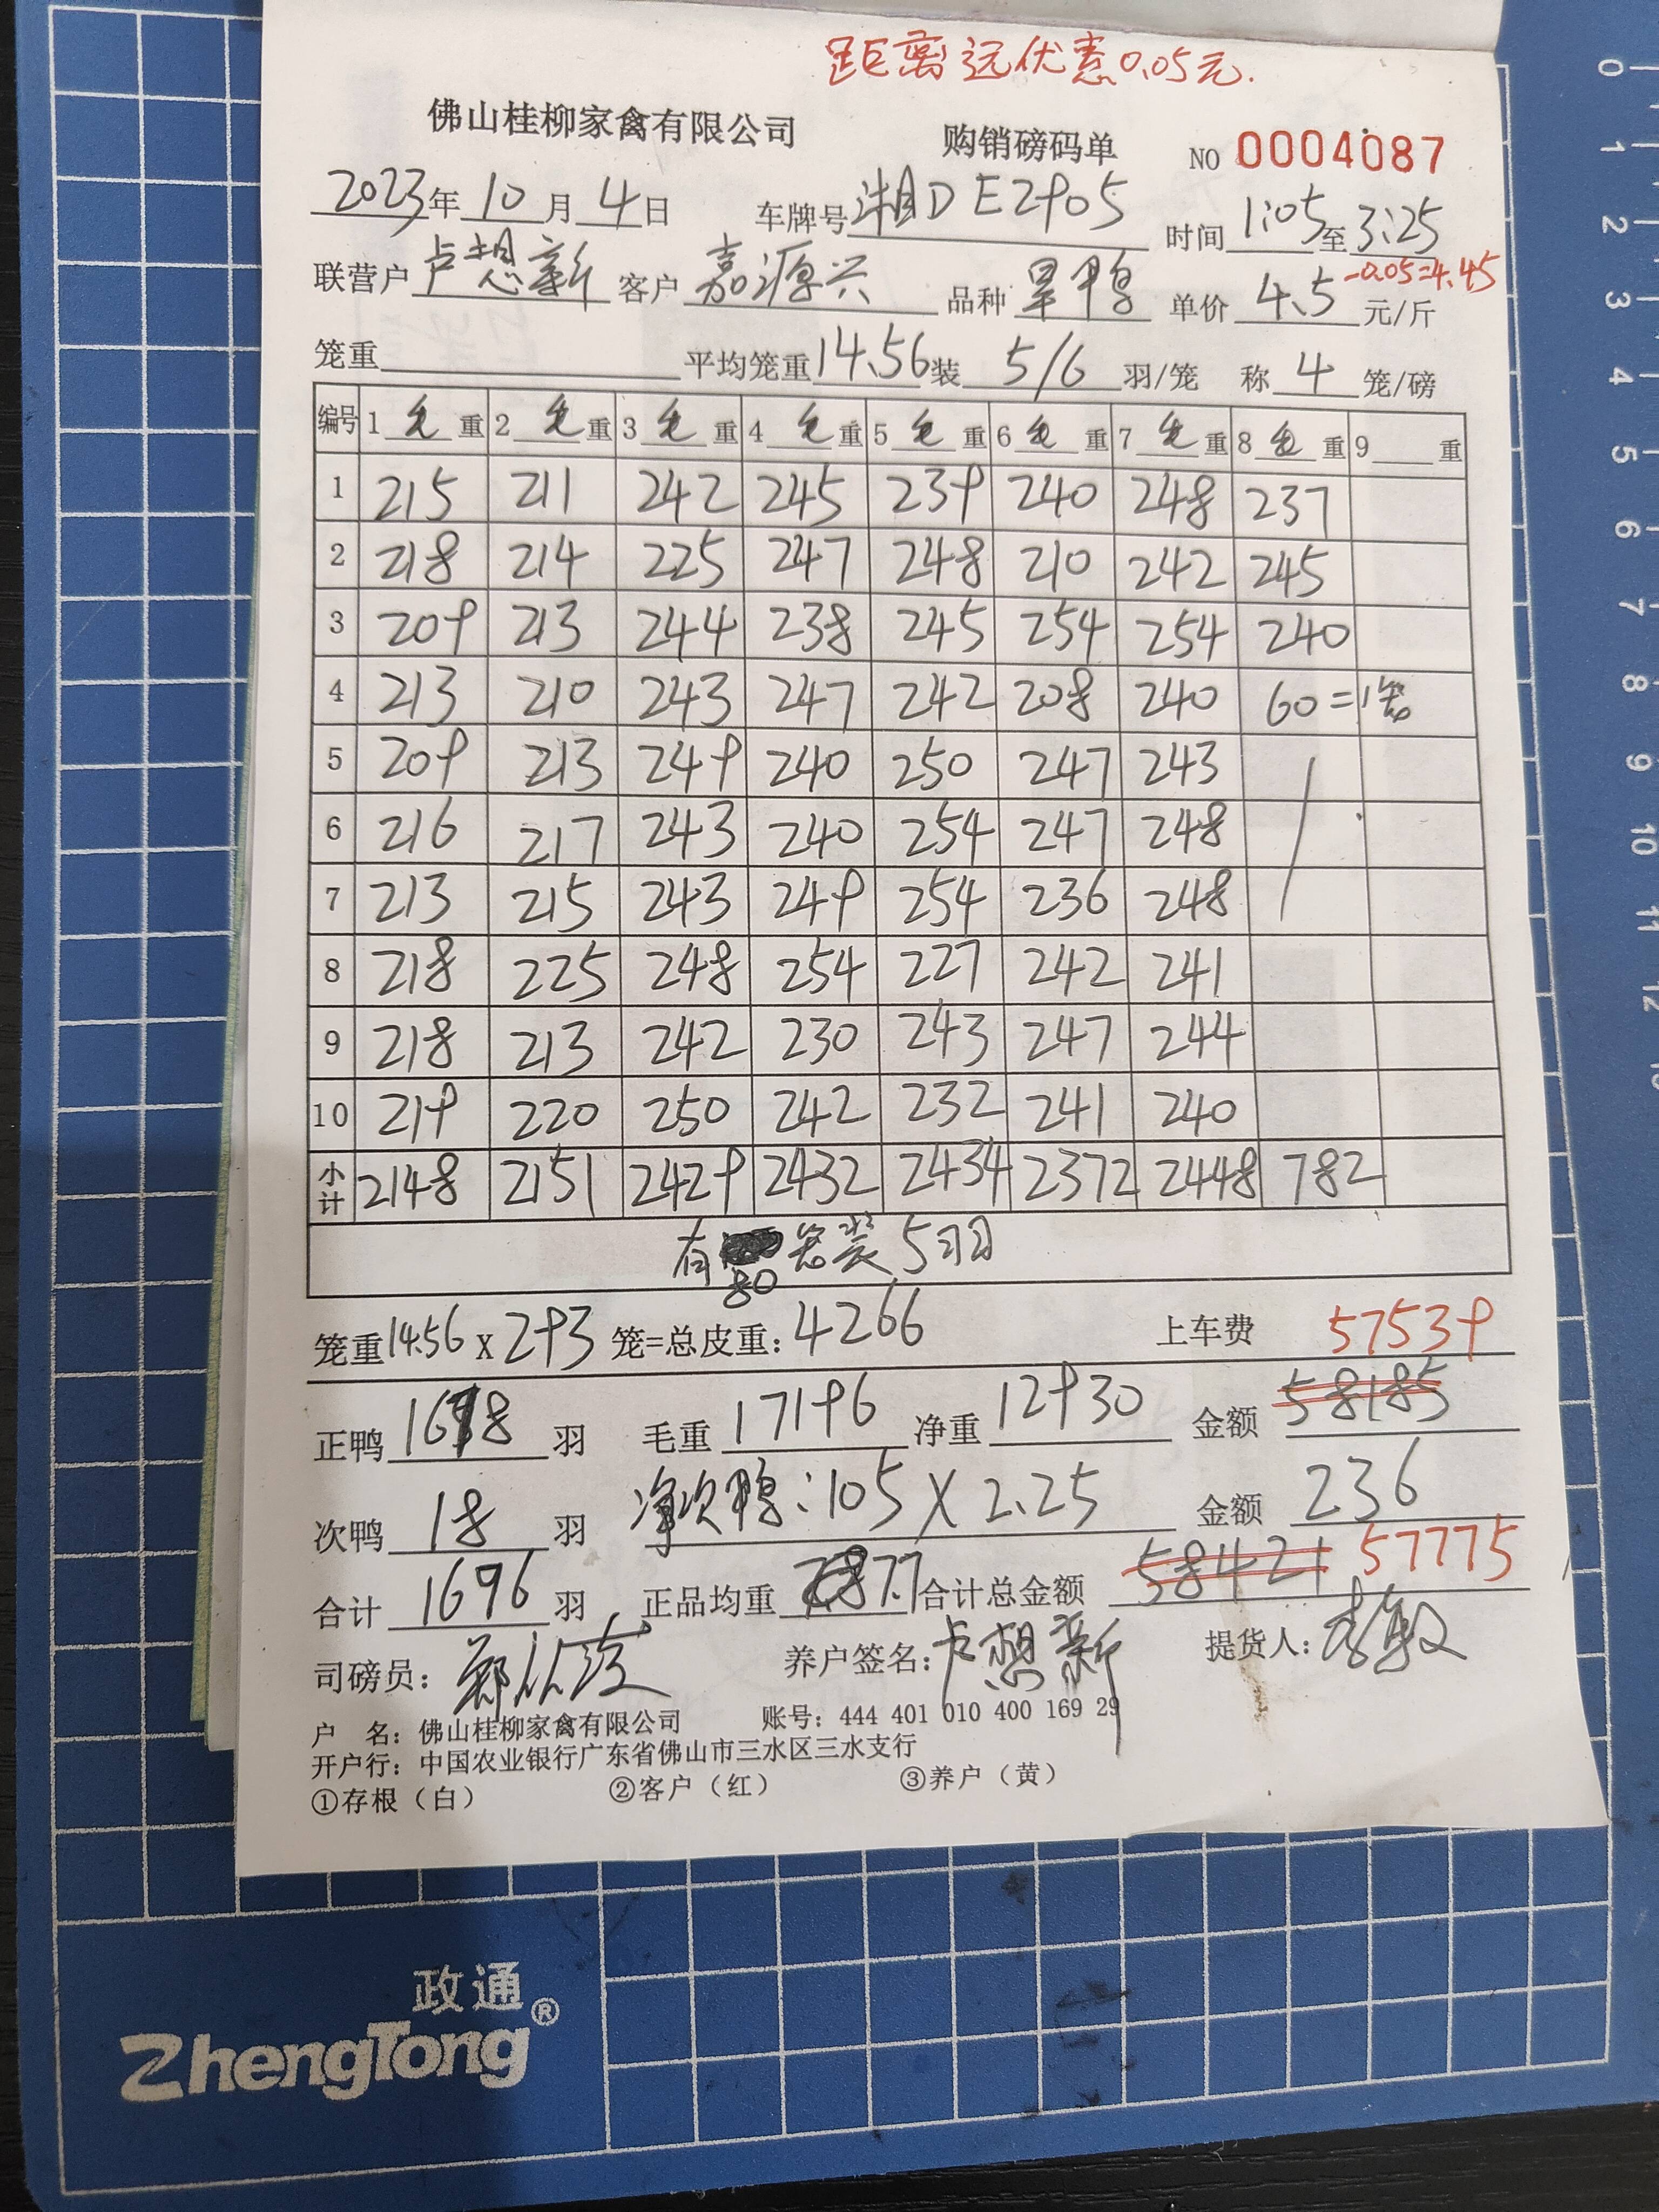 距离远优惠0.05元.
佛山桂柳家禽有限公司 购销磅码单 NO 0004087
2023年10月4日 车牌号湘D E2905 时间1:05至3:25
联营户卢想新 客户嘉源兴 品种旱鸭 单价4.5元/斤 -0.05=4.45
笼重 平均笼重14.56装5/6羽/笼 称4笼/磅
编号 1毛重 2毛重 3毛重 4毛重 5毛重 6毛重 7毛重 8毛重 9重
1 215 211 242 245 239 240 248 237
2 218 214 225 247 248 210 242 245
3 209 213 244 238 245 254 254 240
4 213 210 243 247 242 208 240 60=1笼
5 209 213 249 240 250 247 243
6 216 217 243 240 254 247 248
7 213 215 243 249 254 236 248
8 218 225 248 254 227 242 241
9 218 213 242 230 243 247 244
10 219 220 250 242 232 241 240
小计 2148 2151 2429 2432 2434 2372 2448 782
有80笼装5羽
笼重14.56x293笼=总皮重:4266 上车费 57539
正鸭1678羽 毛重17196 净重12930 金额58185
次鸭18羽 净次鸭:105X2.25 金额236
合计1696羽 正品均重7.7 合计总金额58421 57775
司磅员: 养户签名:卢想新 提货人:李敏
户 名:佛山桂柳家禽有限公司 账号:444 401 010 400 169 29
开户行:中国农业银行广东省佛山市三水区三水支行
①存根(白) ②客户(红) ③养户(黄)
0
1
2
3
4
5
6
7
8
9
10
11
12
13
政通®
ZhengTong